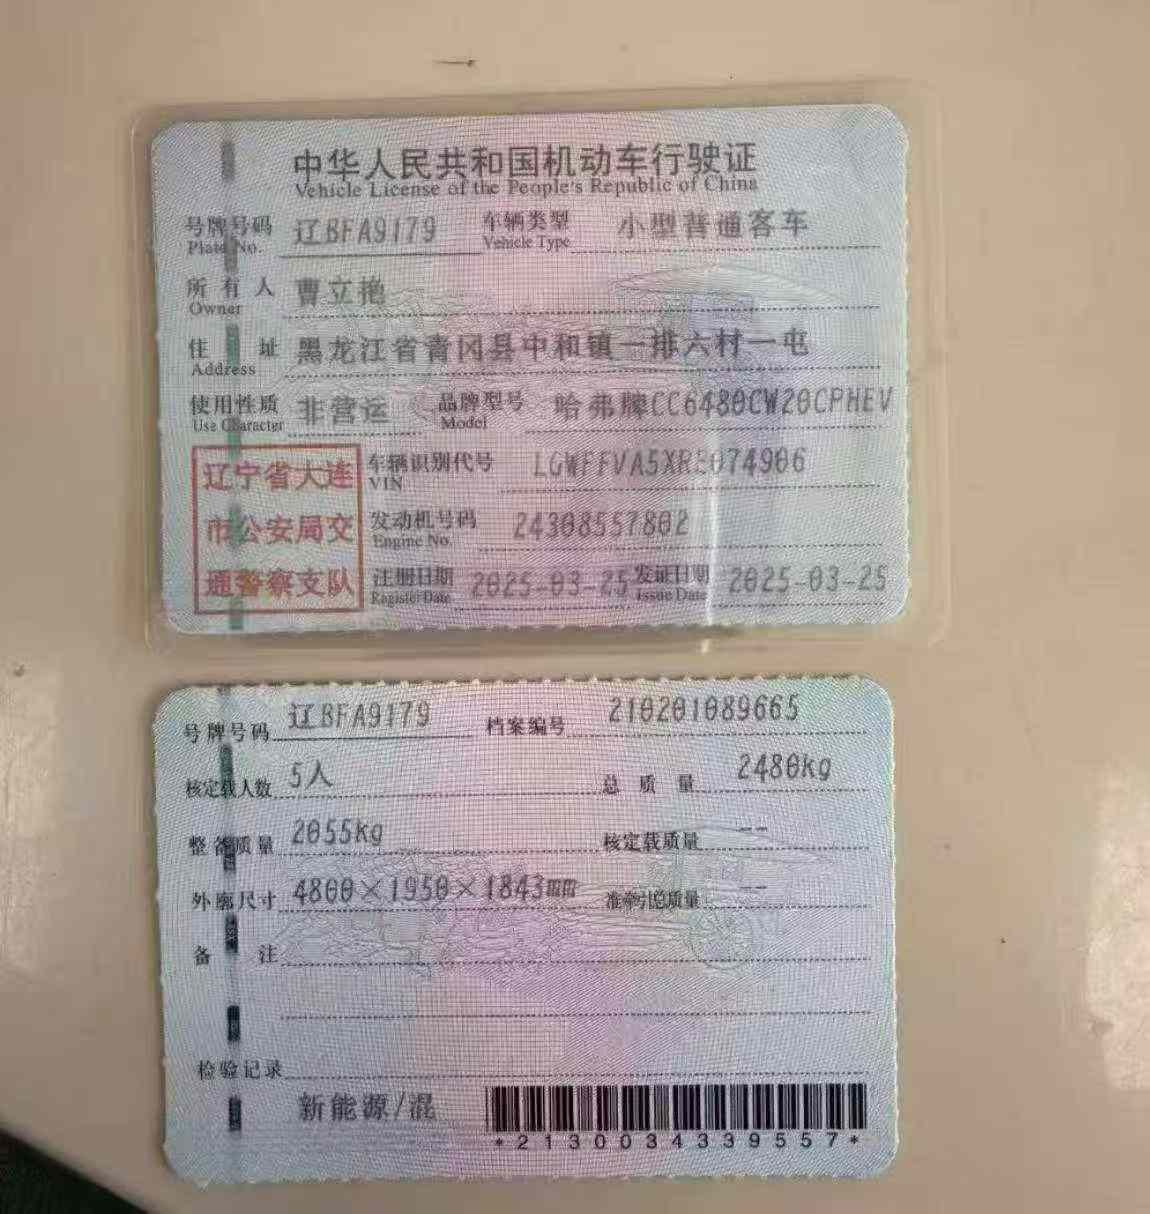 中华人民共和国机动车行驶证
Vehicle License of the People's Republic of China
号牌号码 辽BFA9179 车辆类型 小型普通客车
Plate No. Vehicle Type
所有人 曹立艳
Owner
住址 黑龙江省青冈县中和镇一排六村一屯
Address
使用性质 非营运 品牌型号 哈弗牌CC6480CW20CPHEV
Use Character Model
辽宁省大连
市公安局交
通警察支队
车辆识别代号
VIN
发动机号码 24308557802
Engine No.
注册日期 2025-03-25 发证日期 2025-03-25
Register Date Issue Date
号牌号码 辽BFA9179 档案编号 210201089665
核定载人数 5人 总质量 2480kg
整备质量 2055kg 核定载质量 --
外廓尺寸 4800×1950×1843mm 准牵引总质量 --
备注
检验记录
新能源/混
*2130034339557*